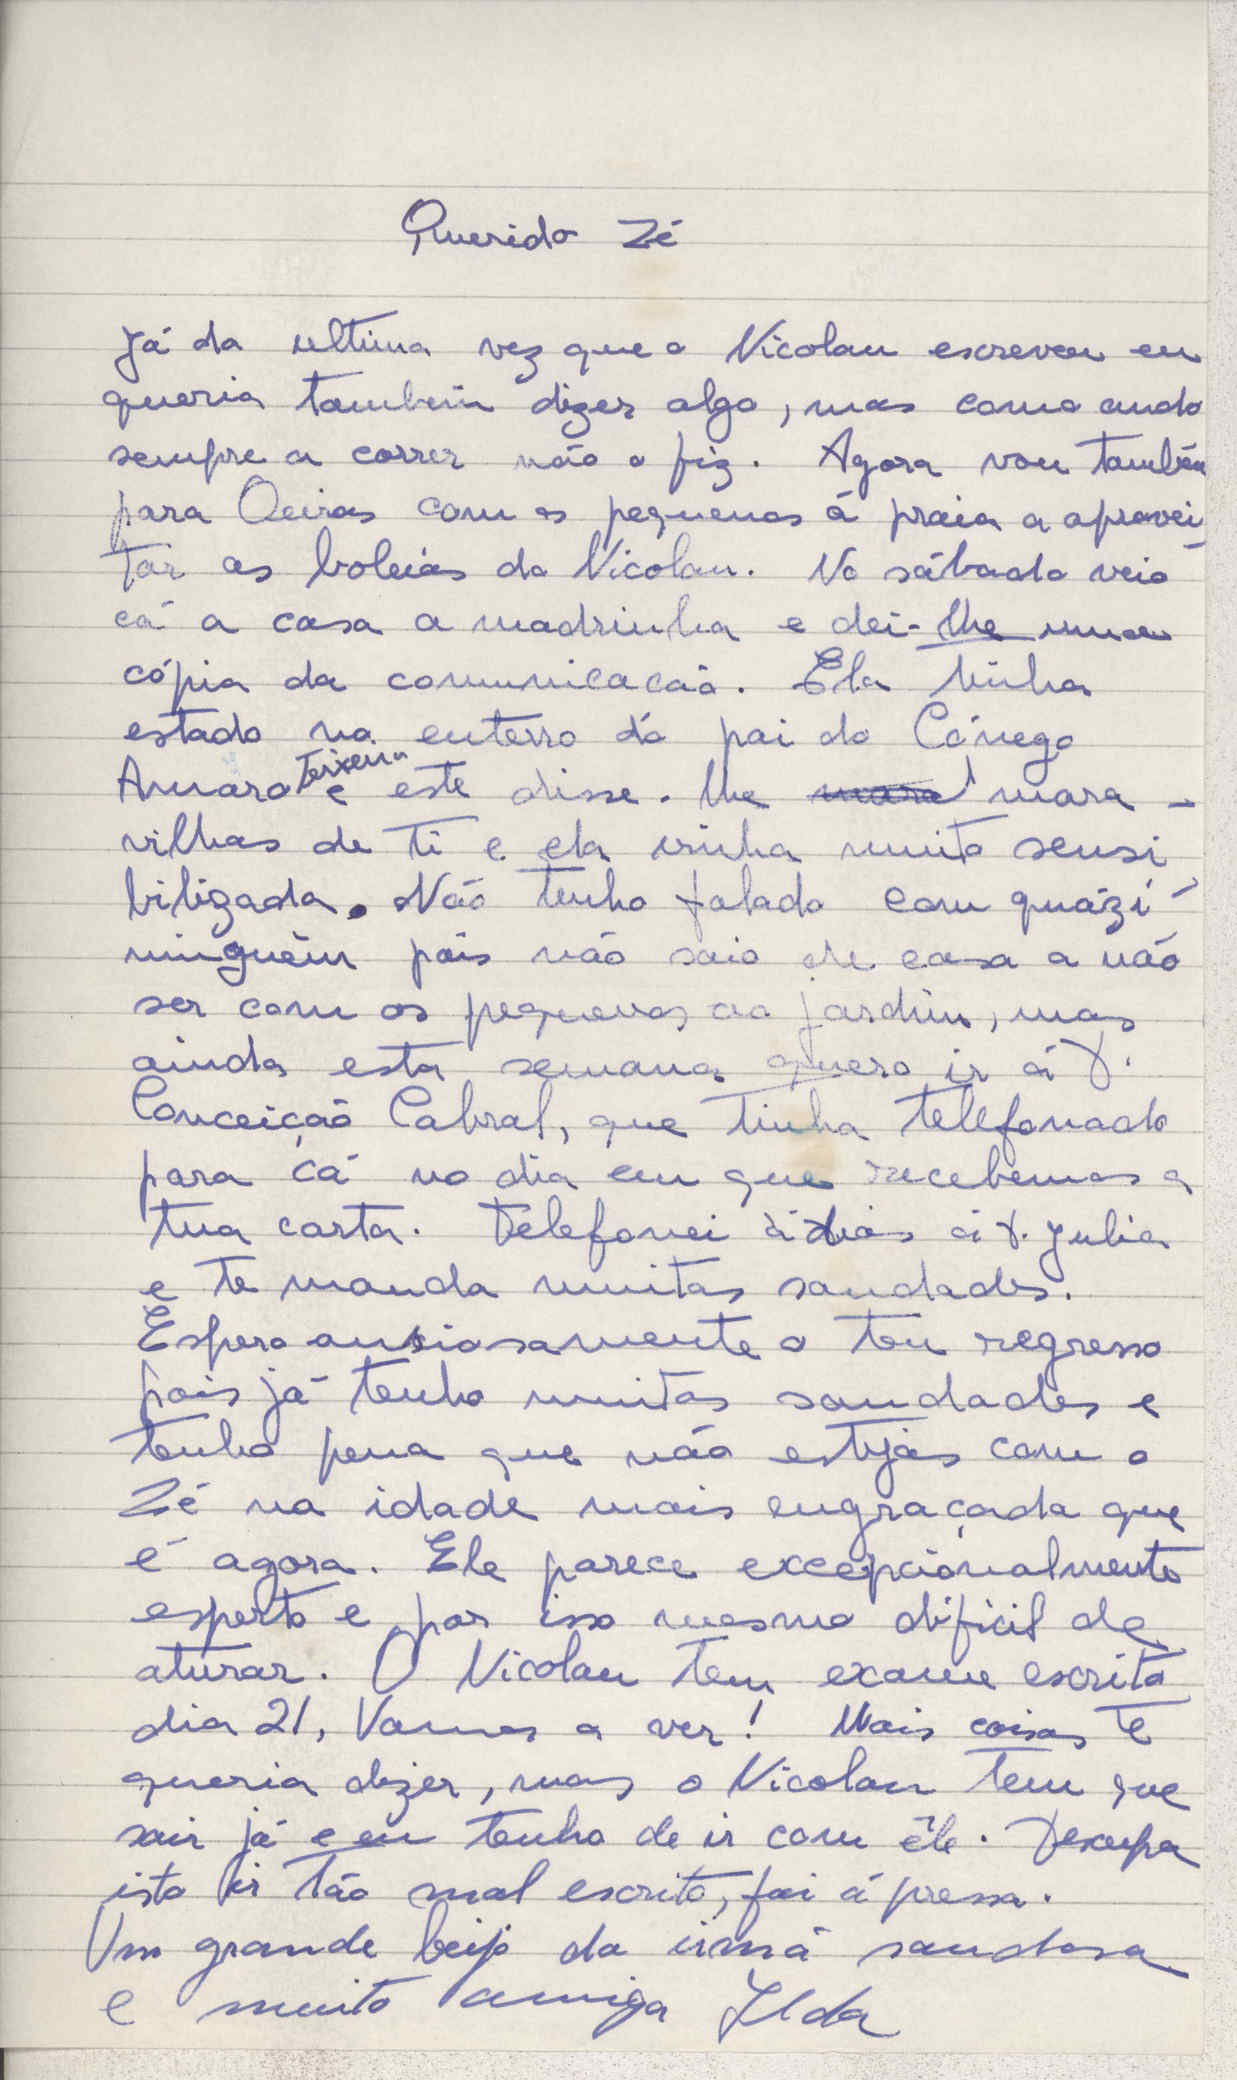 Querido Zé
Já da ultima vez que o Nicolau escreveu eu
queria também dizer algo, mas como ando
sempre a correr não o fiz. Agora vou também
para Oeiras com os pequenos á praia a aprovei
tar as boleias do Nicolau. No sábado veio
cá a casa a madrinha e dei-lhe uma
cópia da comunicacão. Ela tinha
estado no enterro do pai do Cónego
Amaro Teixeira e este disse-lhe mara mara-
vilhas de ti e ela vinha muito sensi
bilizada. Não tenho falado com quázi
ninguém pois não saio de casa a não
ser com os pequenos ao jardim, mas
ainda esta semana quero ir á D.
Conceição Cabral, que tinha telefonado
para cá no dia em que recebemos a
tua carta. Telefonei á dias á D. Julia
e te manda muitas saudades.
Espero ansiosamente o teu regresso
pois já tenho muitas saudades e
tenho pena que não estejas com o
Zé na idade mais engraçada que
é agora. Ele parece excepcionalmente
esperto e por isso mesmo dificil de
aturar. O Nicolau tem exame escrito
dia 21, Vamos a ver! Mais coisas te
queria dizer, mas o Nicolau tem que
sair já e eu tenho de ir com êle. Desculpa
isto ir tão mal escrito, foi á pressa.
Um grande beijo da irmã saudosa
e muito amiga Ilda